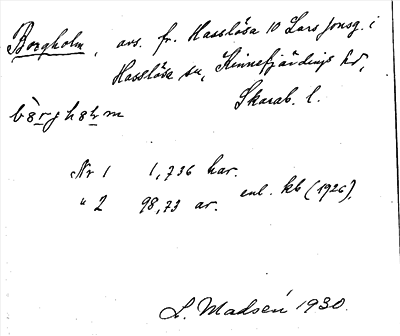 Borgholm, avs. fr. Hasslösa 10 Lars Jonsg. i
Hasslösa sn, Kinnefjärdings hd,
Skarab. l.
bòrjhòlm
Nr 1 1,736 har.
" 2 98,73 ar. enl. kb (1926).
L. Madsén 1930.